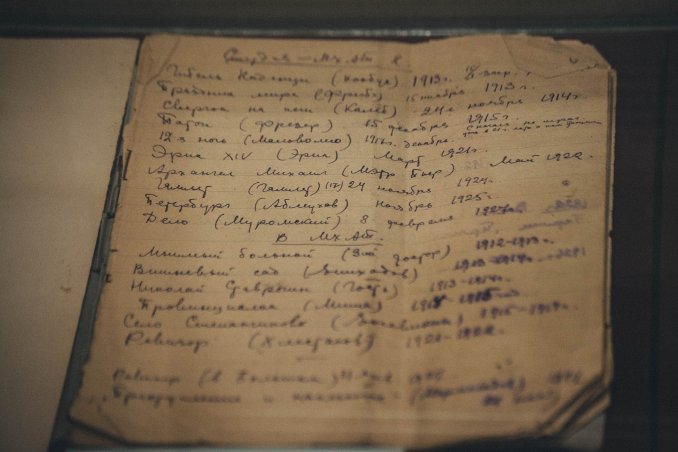 Студия – МХАТ 2
Гибель Надежды (Кообус) 1913г. янв.
Праздник мира (Фрибэ) 15 ноября 1913г.
Сверчок на печи (Калеб) 24е ноября 1914г.
Потоп (Фрезер) 15 декабря 1915г.
12я ночь (Мальволио) 1917г. декабрь.
Эрик XIV (Эрик) Март 1921г.
Архангел Михаил (Мэтр Пьер) Май 1922.
Гамлет (Гамлет) 24 ноября 1924.
Петербург (Аблеухов) ноябрь 1925г.
Дело (Муромский) 8 февраля 1927г.
В МХАТ.
Мнимый больной (доктор) 1912-1913г.
Вишневый сад (Епиходов) 1913-1914г.
Николай Ставрогин (Гость) 1913-1914г.
Провинциалка (Миша)
Село Степанчиково 1915-1917г.
Ревизор (Хлестаков) 1921-1922
Ревизор
Преступление и наказание